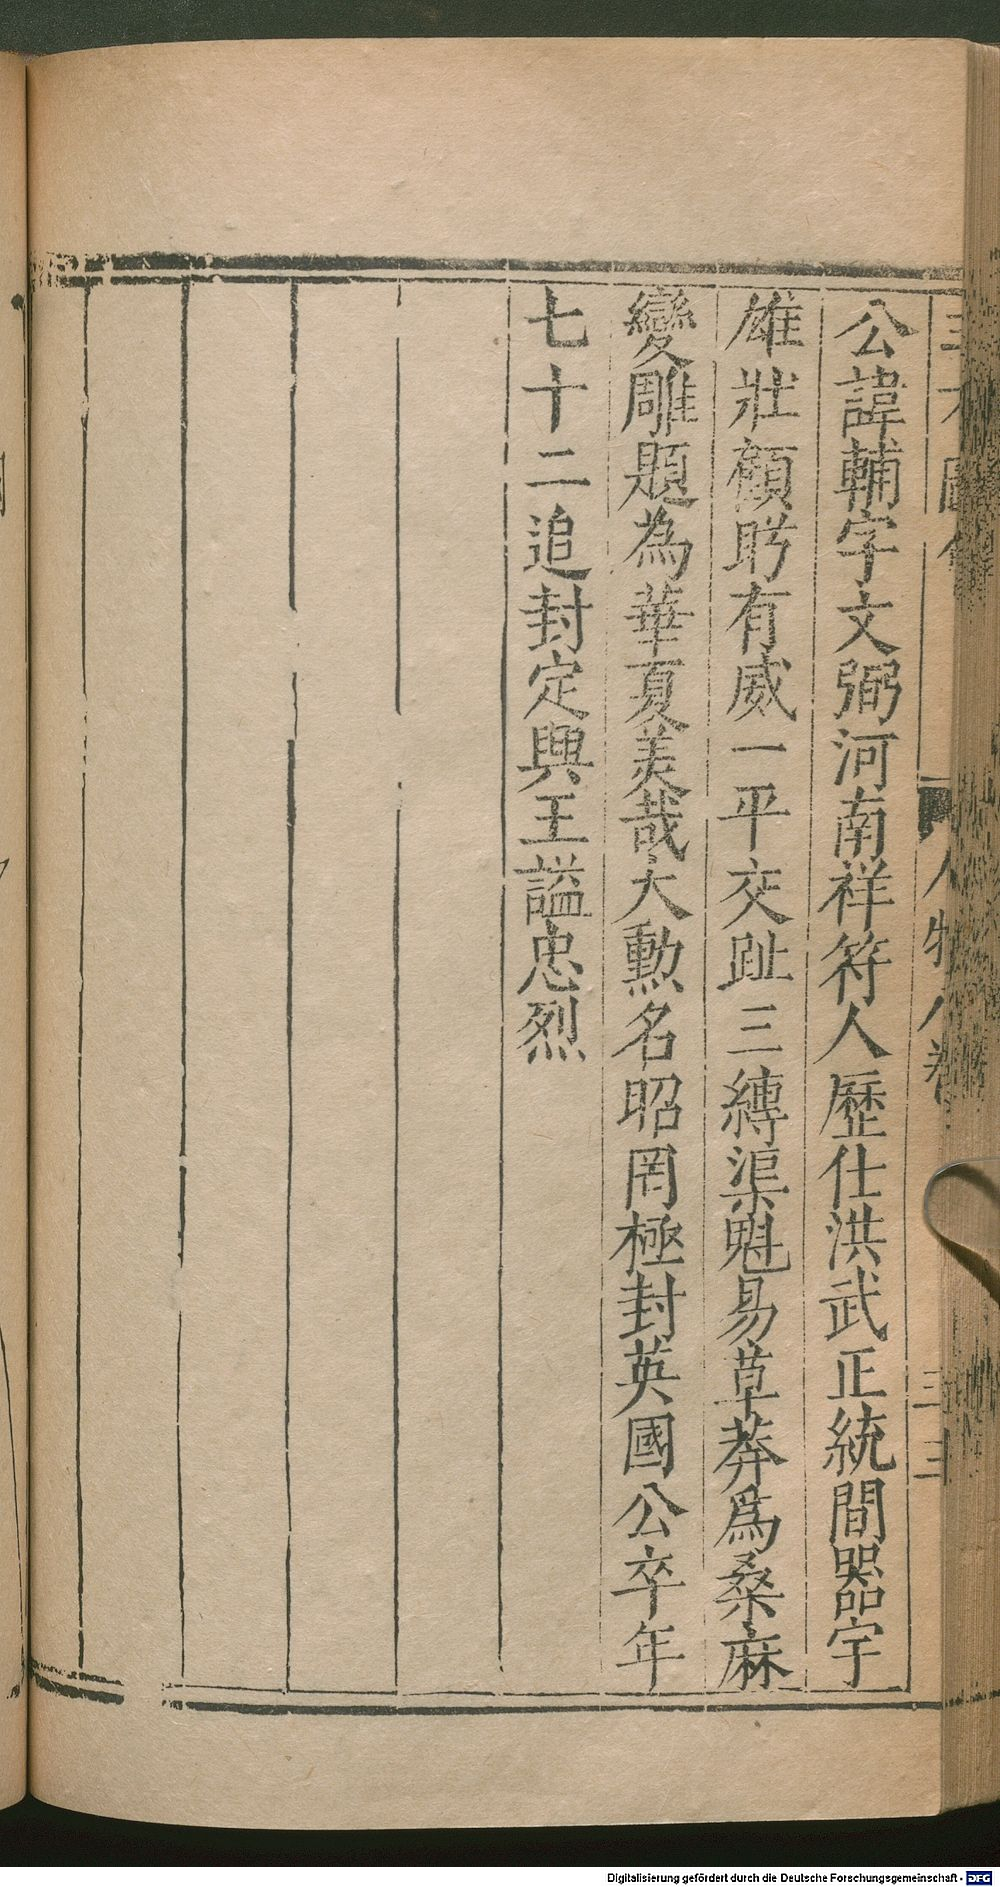 公諱輔字文弼河南祥符人歷仕洪武正統間器宇
雄壯顧眄有威一平交趾三縛渠魁易草莽爲桑麻
變雕題為華夏美哉大勲名昭罔極封英國公卒年
七十二追封定興王謚忠烈
人物八卷
三三
Digitalisierung gefördert durch die Deutsche Forschungsgemeinschaft - DFG